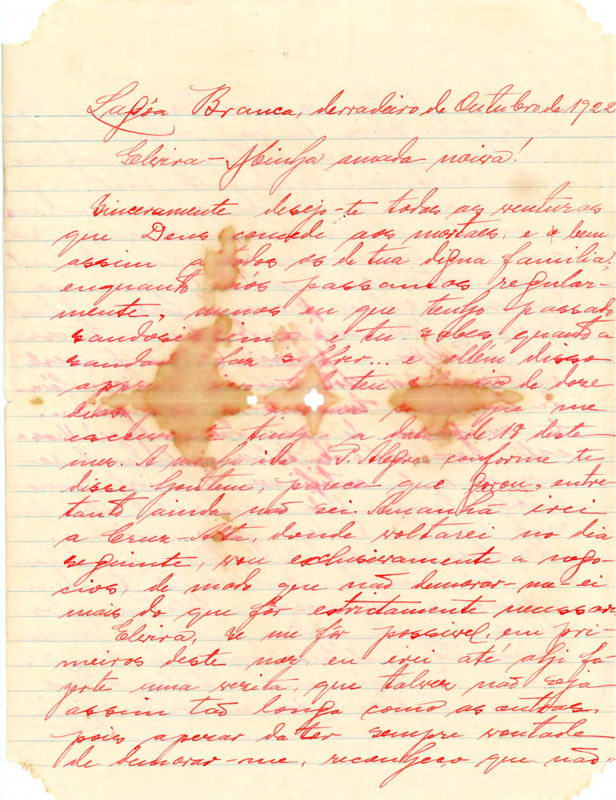 Lagôa Branca, derradeiro de Outubro de 1922
Elvira – Minha amada noiva!
Sinceramente desejo-te todas as venturas
que Deus concede aos mortaes, e o bem
assim a todos os de tua digna familia,
enquanto nós passamos regular-
mente, menos eu que tenho passado
e tu sabes quanto a
saudade faz soffrer... e além disso
de doze
dias que me
escreveste tinha a data de 18 deste
mez. A minha ida a P. Alegre, conforme te
disse hontem, parece que gorou, entre
tanto ainda não sei. Amanhã irei
a Cruz-Alta, donde voltarei no dia
seguinte, vou exclusivamente a nego-
cios, de modo que não demorar-me-ei
mais do que fôr estrictamente necessar
Elvira, se me fôr possivel, em pri-
meiros deste mez, eu irei até ahi fa
zerte uma vezita, que talvez não seja
assim tão longa como as outras,
pois apezar da ter sempre vontade
de demorar-me, reconheço que não